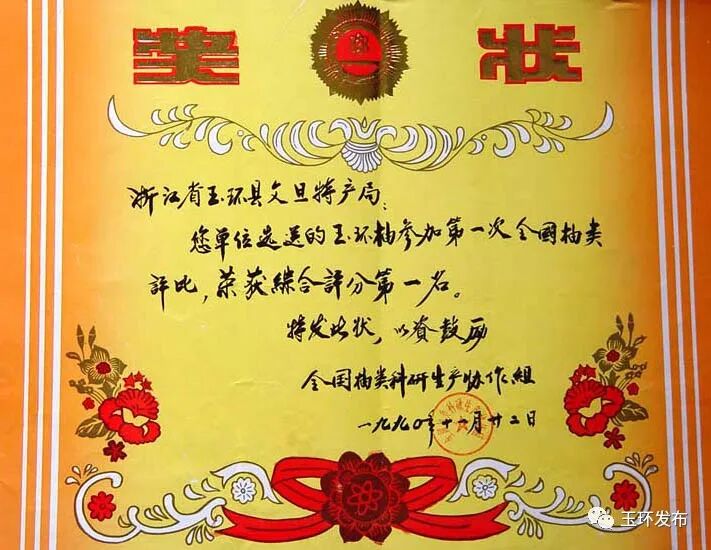 奖 状
浙江省玉环县文旦特产局:
您单位选送的玉环柚参加第一次全国柚类
評比，荣获綜合評分第一名。
特发此状，以资鼓励
全国柚类科研生产协作組
一九九〇年十一月廿二日
玉环发布